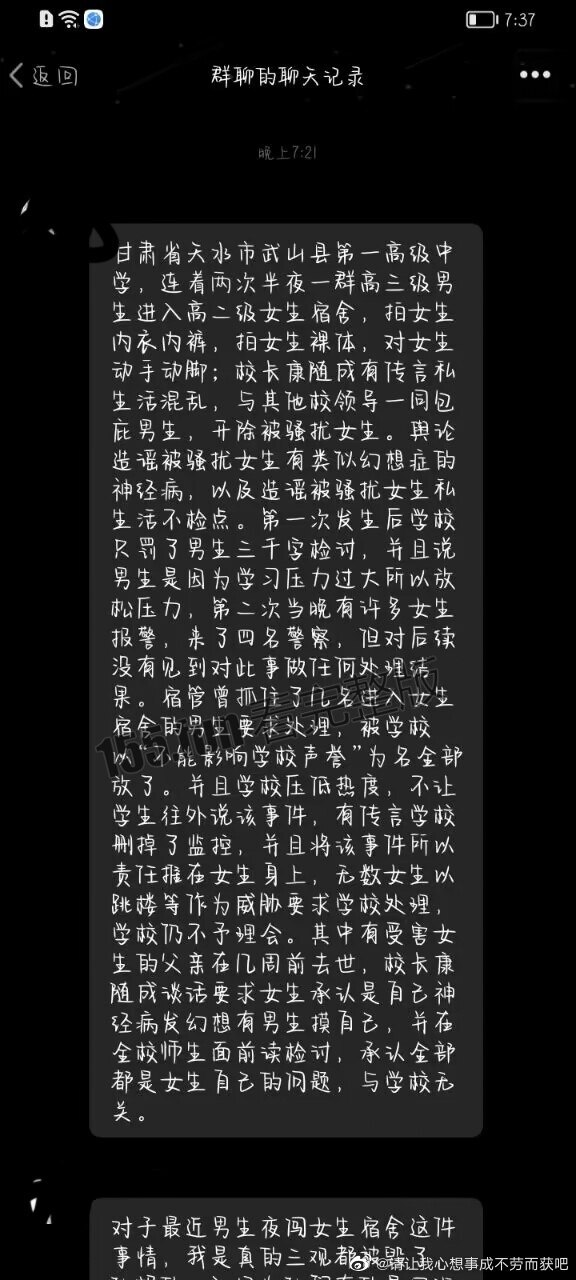 7:37
返回
群聊的聊天记录
晚上7:21
甘肃省天水市武山县第一高级中
学，连着两次半夜一群高三级男
生进入高二级女生宿舍，拍女生
内衣内裤，拍女生裸体，对女生
动手动脚；校长康随成有传言私
生活混乱，与其他校领导一同包
庇男生，开除被骚扰女生。舆论
造谣被骚扰女生有类似幻想症的
神经病，以及造谣被骚扰女生私
生活不检点。第一次发生后学校
只罚了男生三千字检讨，并且说
男生是因为学习压力过大所以放
松压力，第二次当晚有许多女生
报警，来了四名警察，但对后续
没有见到对此事做任何处理结
果。宿管曾抓住了几名进入女生
宿舍的男生要求处理，被学校
以“不能影响学校声誉”为名全部
放了。并且学校压低热度，不让
学生往外说该事件，有传言学校
删掉了监控，并且将该事件所以
责任推在女生身上，无数女生以
跳楼等作为威胁要求学校处理，
学校仍不予理会。其中有受害女
生的父亲在几周前去世，校长康
随成谈话要求女生承认是自己神
经病发幻想有男生摸自己，并在
全校师生面前读检讨，承认全部
都是女生自己的问题，与学校无
关。
看完整版
对于最近男生夜闯女生宿舍这件
事情，我是真的三观都被毁了
@请让我心想事成不劳而获吧